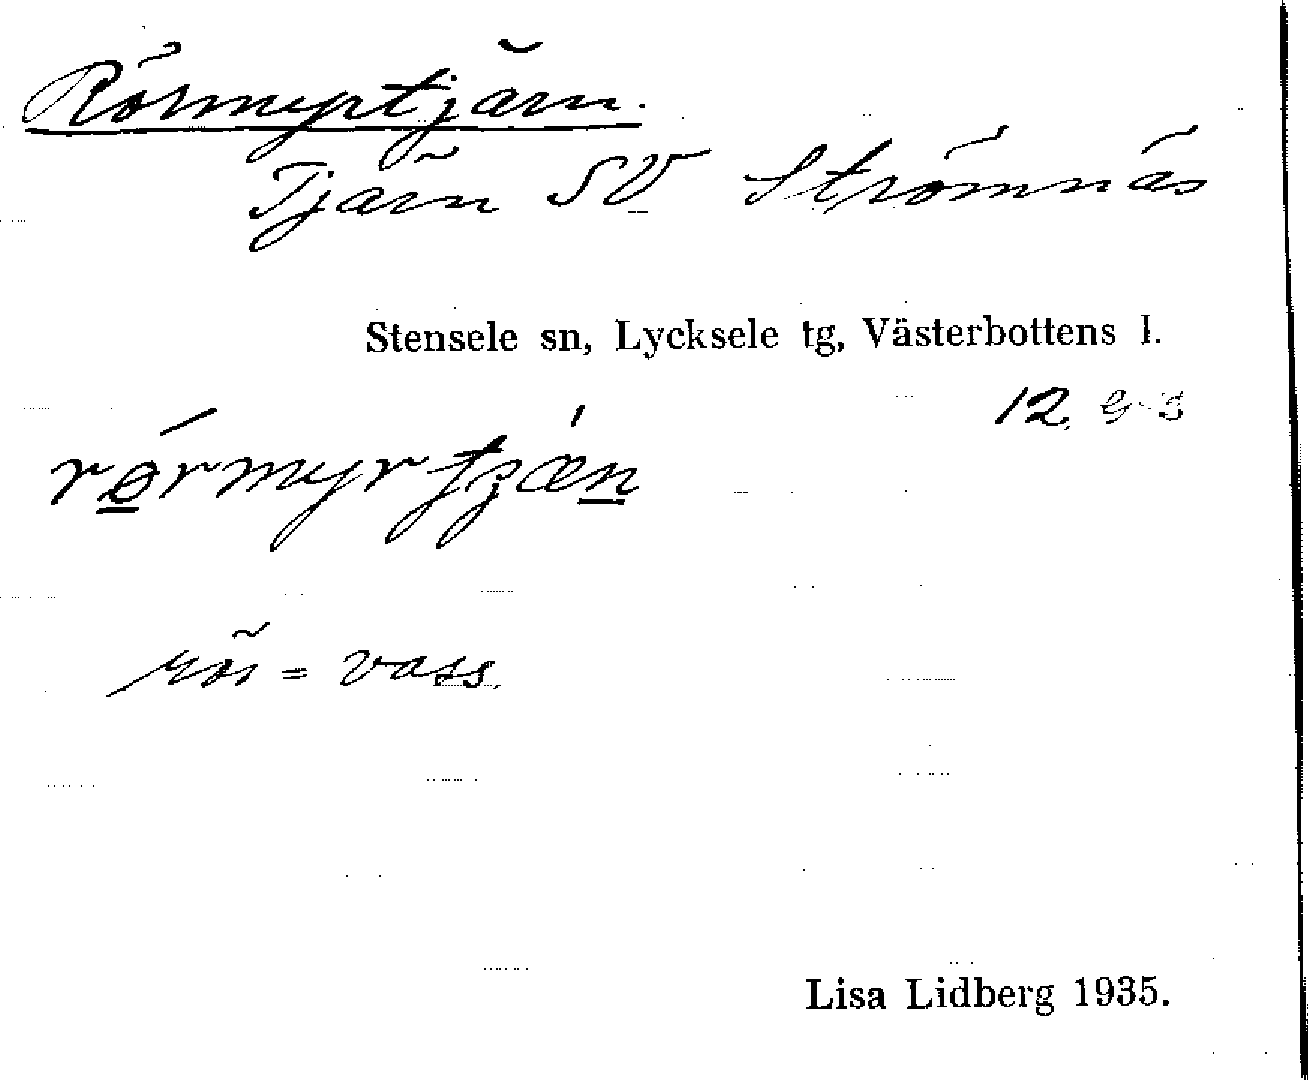 Rörmyrtjärn.
Tjärn SV Strömnäs
Stensele sn, Lycksele tg, Västerbottens l.
12.
rör = vass.
Lisa Lidberg 1935.